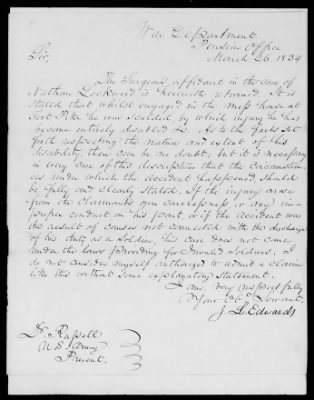 War Department
Pension Office
March 26 1834
Sir,
The Surgeons affidavit in the case of
Nathan Lockwood is herewith returned. It is
stated that whilst engaged in the mess house at
Fort Pike he was scalded by which injury he has
become entirely disabled &c. As to the facts set
forth respecting the nature and extent of this
disability there can be no doubt, but it is necessary
in every case of this description that the circumstan-
ces under which the accident happened should
be fully and clearly stated. If the injury arose
from the claimants own carelessness, or any im-
proper conduct on his part, or if the accident was
the result of causes not connected with the discharge
of his duty as a soldier, his case does not come
under the laws providing for Invalid Soldiers. I
do not consider myself authorized to admit a claim
like this without some explanatory statement.
I am, very respectfully
Your Obt Servant.
J. L. Edwards
Dr. Russell
U S Army
Present.